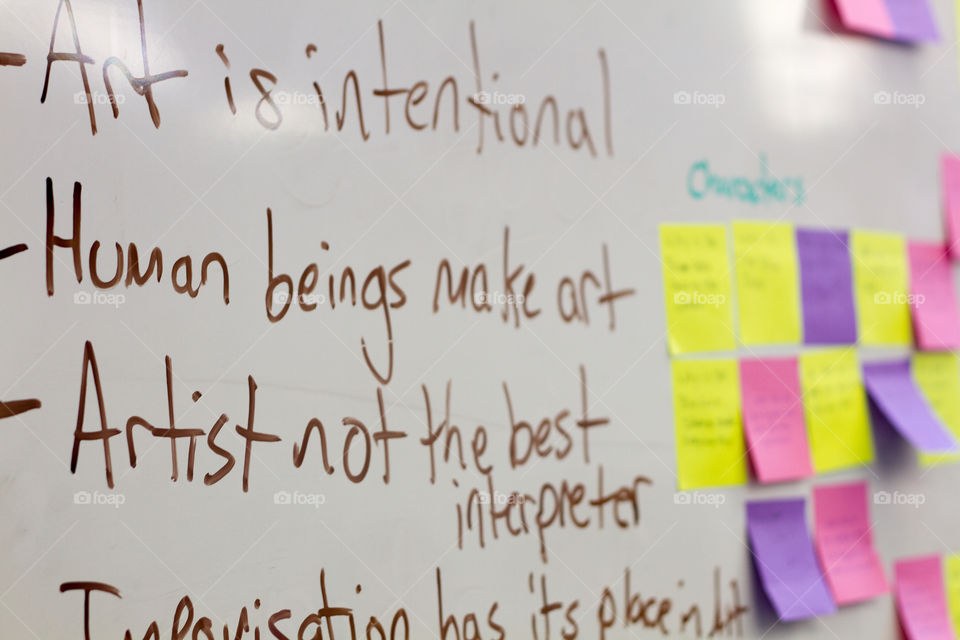 - Art is intentional
Characters
- Human beings make art
- Artist not the best
interpreter
Improvisation has its place in Art